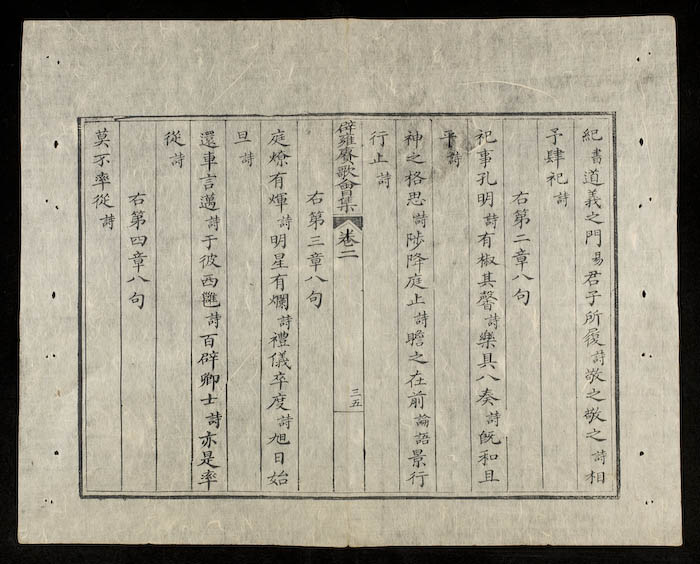 紀書道義之門易君子所履詩敬之敬之詩相
予肆祀詩
右第二章八句
祀事孔明詩有椒其馨詩樂具入奏詩旣和且
平詩
神之格思詩陟降庭止詩瞻之在前論語景行
行止詩
辟雍賡歌會集 卷二 三五
右第三章八句
庭燎有煇詩明星有爛詩禮儀卒度詩旭日始
旦詩
還車言邁詩于彼西雝詩百辟卿士詩亦是率
從詩
右第四章八句
莫不率從詩